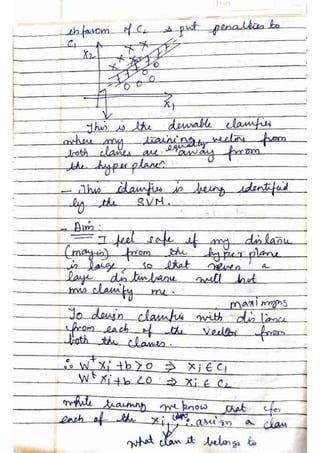 in favour of C2 & put penalties to
C1
X2
X1
This is the desirable classifier
where my training vectors from
both classes are equally away from
the hyperplane.
- This classifier is being identified
by the SVM.
- Aim:
I feel safe if my distance
(margin) from the hyperplane
is large, so that even a
large disturbance will not
mis classify me.
To design classifier with distance
from each of the vector from
both the classes.
∴ Wᵗ Xi + b > 0 ⇒ Xi ∈ C1
Wᵗ Xi + b < 0 ⇒ Xi ∈ C2
while training we know that for
each of the Xi a class
what class it belongs to